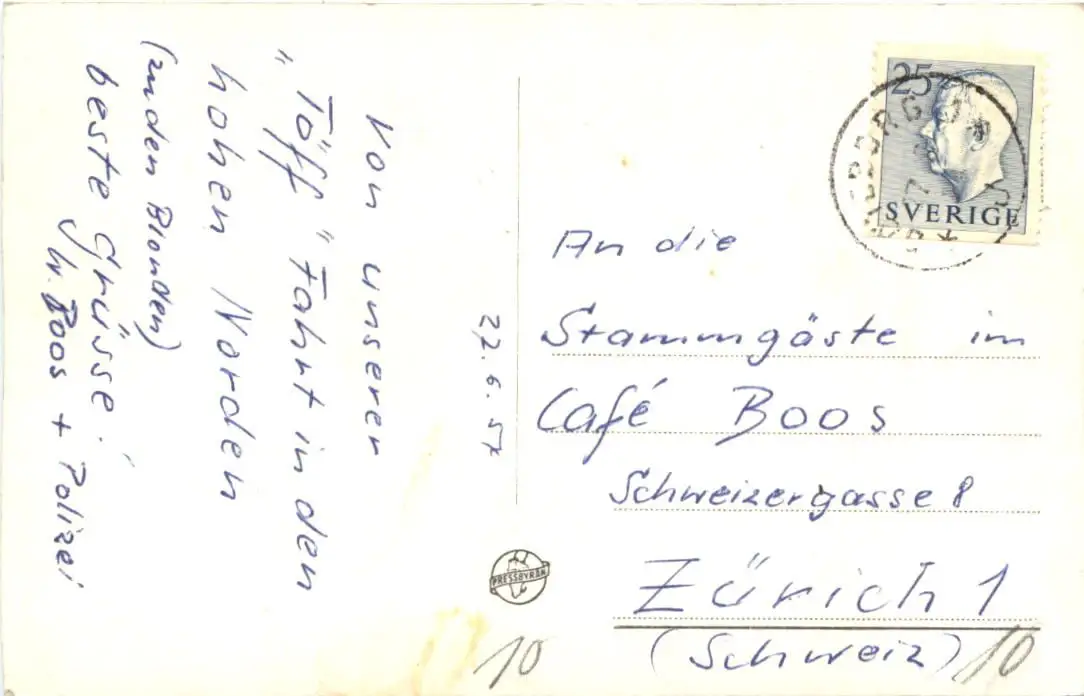 Von unserer
"Töff" Fahrt in den
hohen Norden
(zu den Blonden)
beste Grüsse.
W. Boos + Polizei
22.6.57
25
SVERIGE
An die
Stammgäste im
Café Boos
Schweizergasse 8
Zürich 1
(Schweiz)
PRESSBYRÅN
10
10